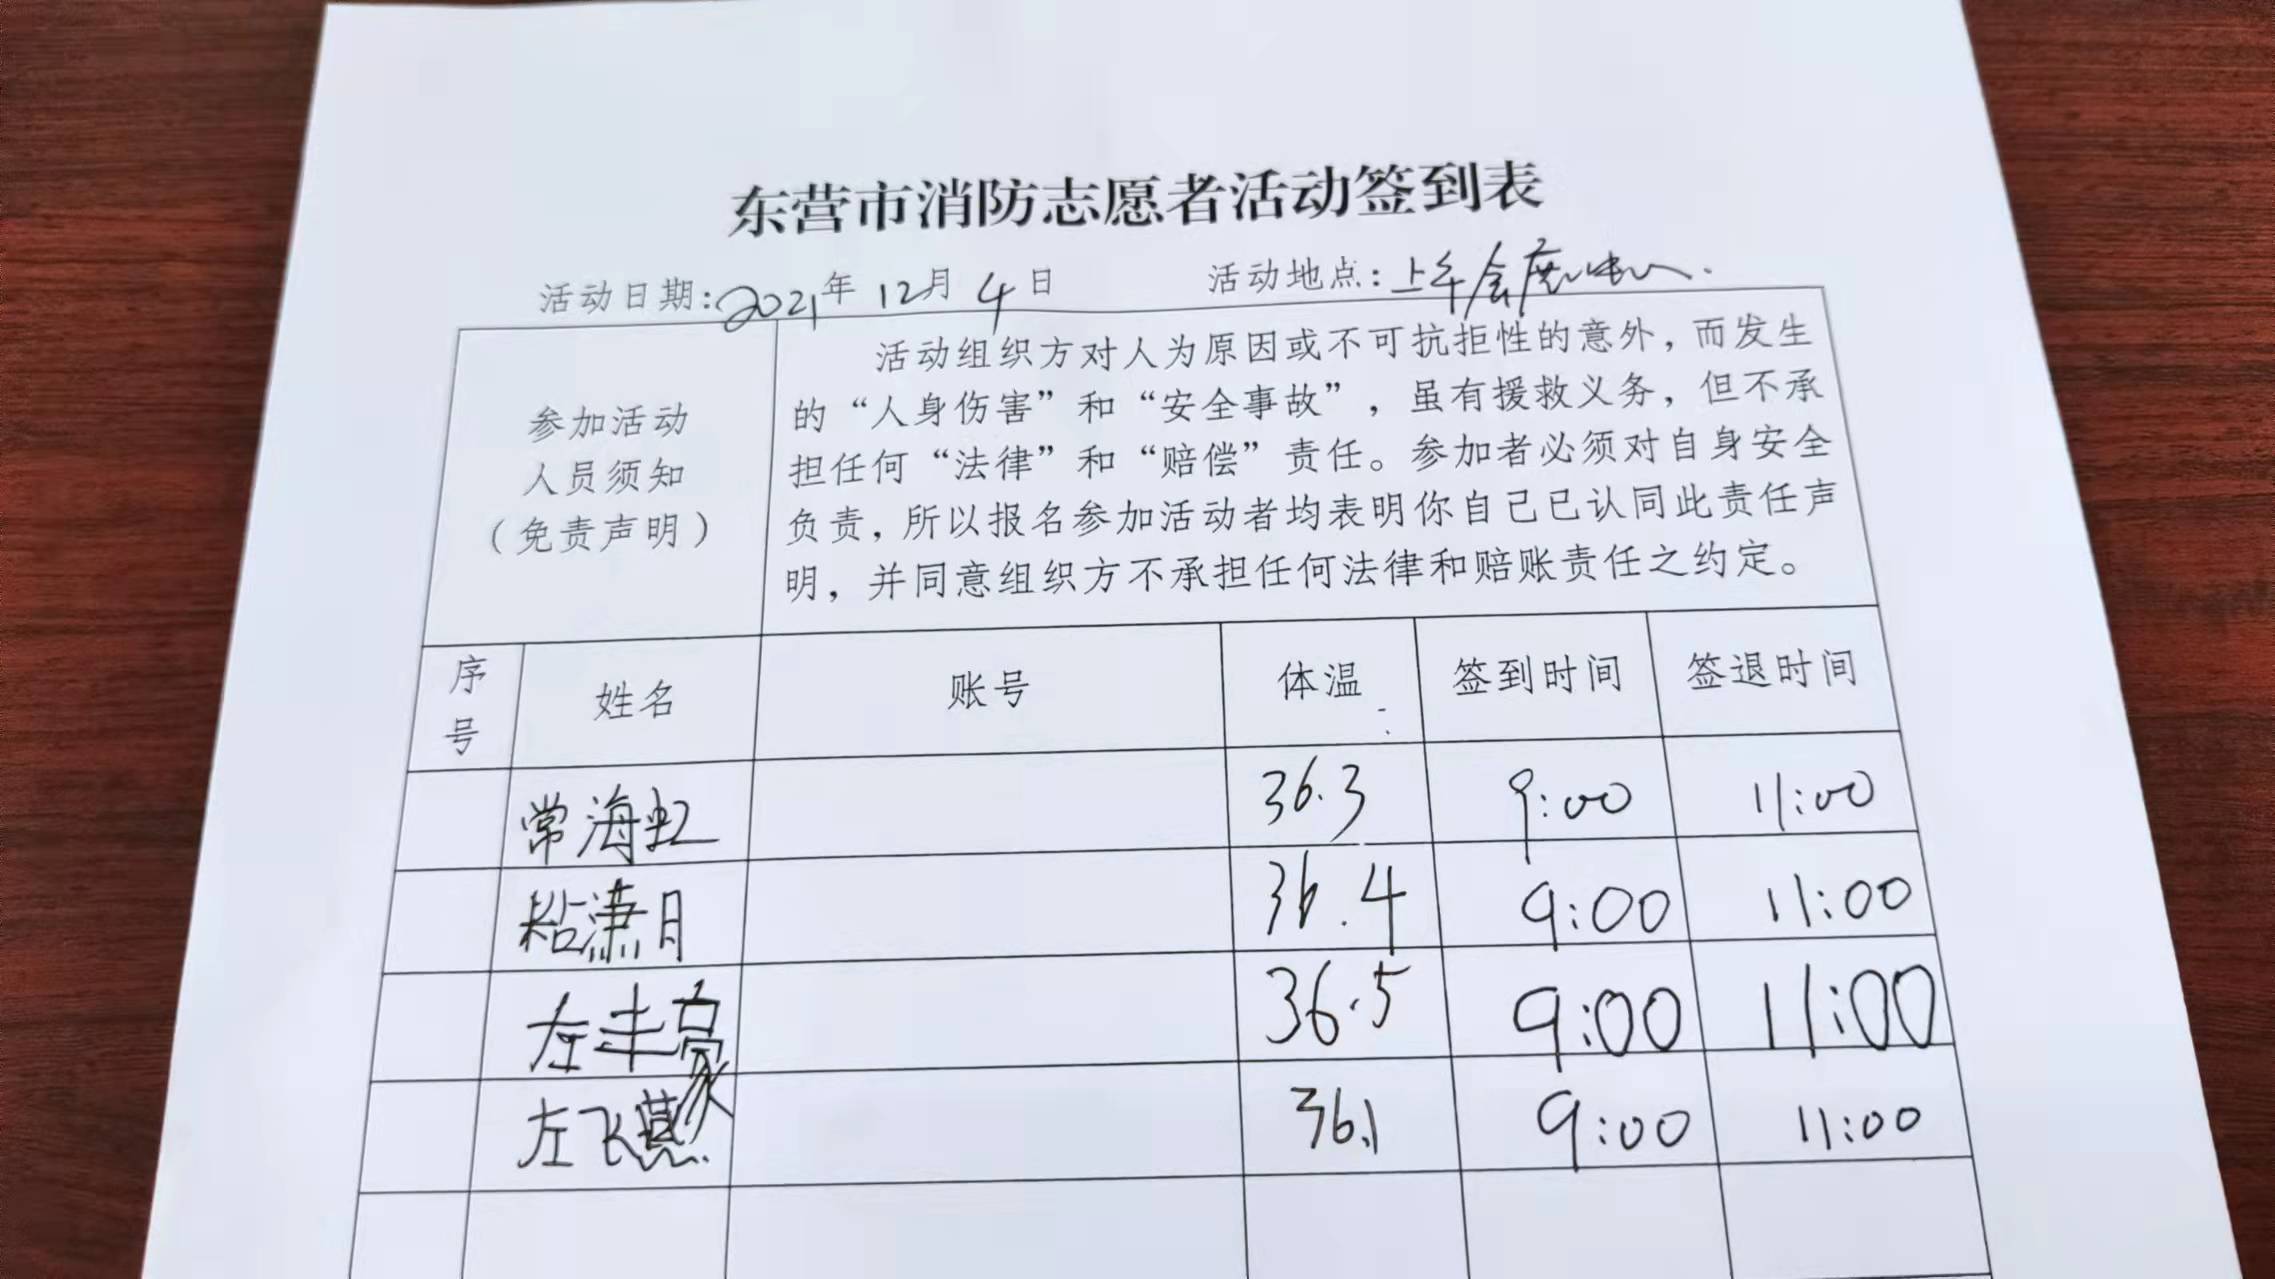 东营市消防志愿者活动签到表
活动日期:2021年 12月 4日 活动地点:上午会展中心.
参加活动
人员须知
（免责声明）
活动组织方对人为原因或不可抗拒性的意外，而发生
的“人身伤害”和“安全事故”，虽有援救义务，但不承
担任何“法律”和“赔偿”责任。参加者必须对自身安全
负责，所以报名参加活动者均表明你自己已认同此责任声
明，并同意组织方不承担任何法律和赔账责任之约定。
序号 姓名 账号 体温 签到时间 签退时间
常海虹 36.3 9:00 11:00
粘潇月 36.4 9:00 11:00
左丰豪 36.5 9:00 11:00
左飞燕 36.1 9:00 11:00